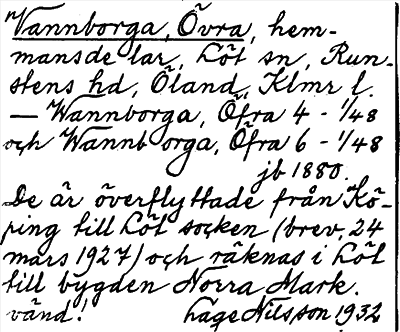 Vannborga, Övra, hem-
mansdelar, Löt sn, Run-
stens hd, Öland, Klmr l.
— Wannborga, Öfra 4 - 1/48
och Wannborga, Öfra 6 - 1/48
jb 1880.
De är överflyttade från Kö-
ping till Löt socken (brev 24
mars 1927) och räknas i Löt
till bygden Norra Mark.
vänd! Lage Nilsson 1932